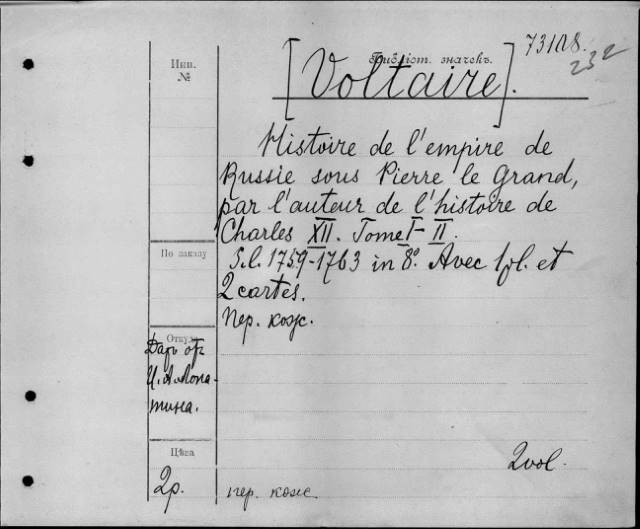 73108.
232
Инв.
№
Библіот. значекъ.
[Voltaire].
Histoire de l'empire de
Russie sous Pierre le Grand,
par l'auteur de l'histoire de
Charles XII. Tome I-II.
S.l. 1759-1763 in 8°. Avec fpl. et
2 cartes.
пер. кож.
По заказу
Откуда
Даръ отъ
И. А. Лопа-
тина.
Цѣна
2р.
пер. кож.
2 vol.